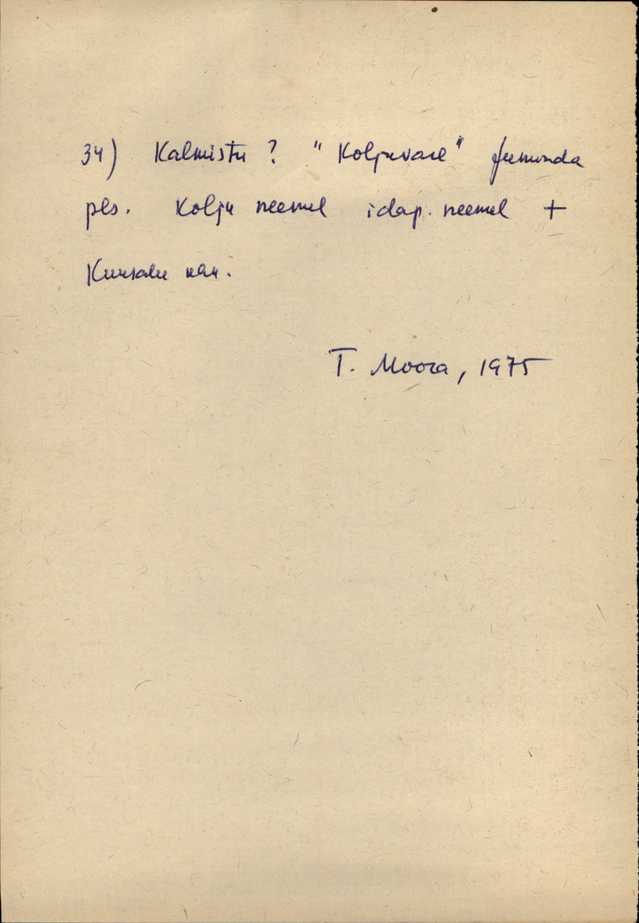 34) Kalmistu? "Koljuvare" Juminda
pls. Kolju neemel idap. neemel +
Kuusalu näu.
T. Moora, 1975